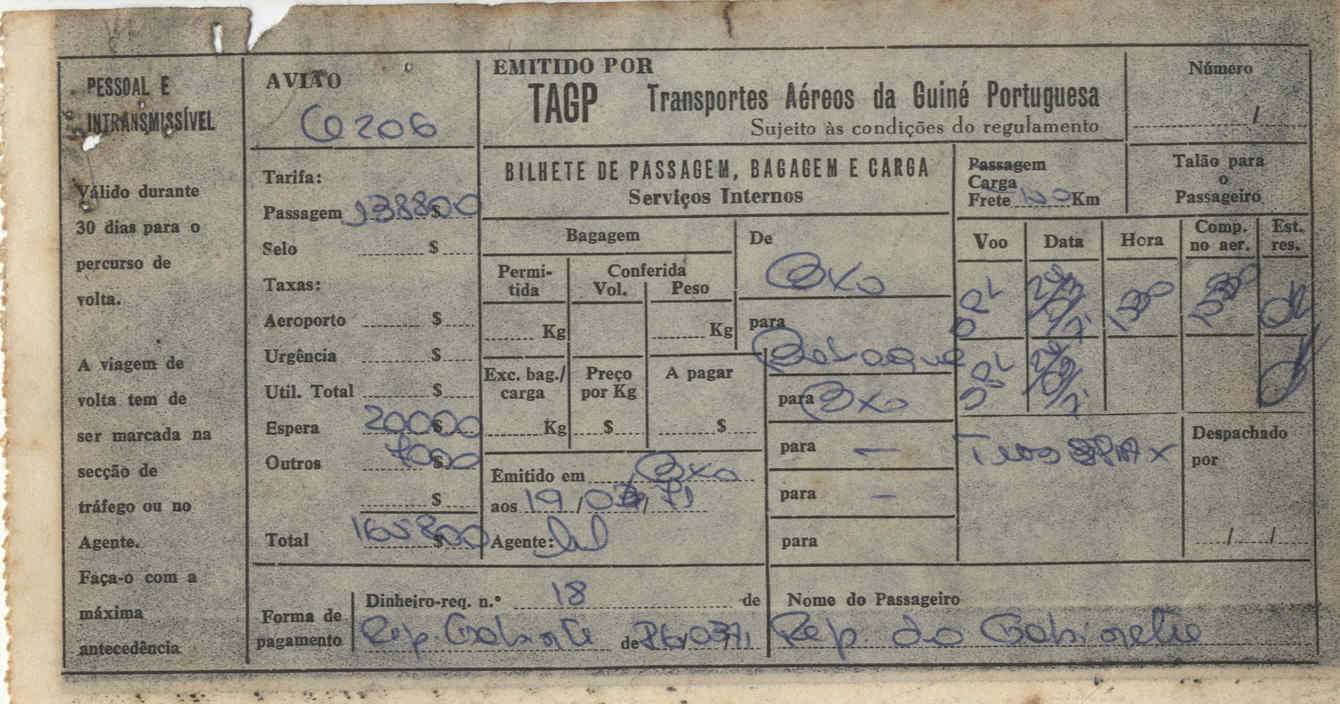 PESSOAL E
INTRANSMISSÍVEL
Válido durante
30 dias para o
percurso de
volta.
A viagem de
volta tem de
ser marcada na
secção de
tráfego ou no
Agente.
Faça-o com a
máxima
antecedência
AVIÃO
C 206
Tarifa:
Passagem 138800
Selo $
Taxas:
Aeroporto $
Urgência $
Util. Total $
Espera 20000
Outros 7000
$
Total 165800
EMITIDO POR
TAGP Transportes Aéreos da Guiné Portuguesa
Sujeito às condições do regulamento
Número
/
BILHETE DE PASSAGEM, BAGAGEM E CARGA
Serviços Internos
Passagem
Carga
Frete Km
Talão para
o
Passageiro
Bagagem
Permi-
tida
Conferida
Vol. Peso
Kg Kg
Exc. bag./
carga
Preço
por Kg
A pagar
Kg $ $
Emitido em Bxo
aos 19/03/71
Agente:
De
Bxo
para
Bolaque
para Bxo
para —
para —
para
Voo Data Hora Comp.
no aer. Est.
res.
1300 1230 OK
OK
Despachado
por
/ /
Forma de
pagamento
Dinheiro-req. n.º 18 de
Rep. Gabinete de
Nome do Passageiro
Rep do Gabinete